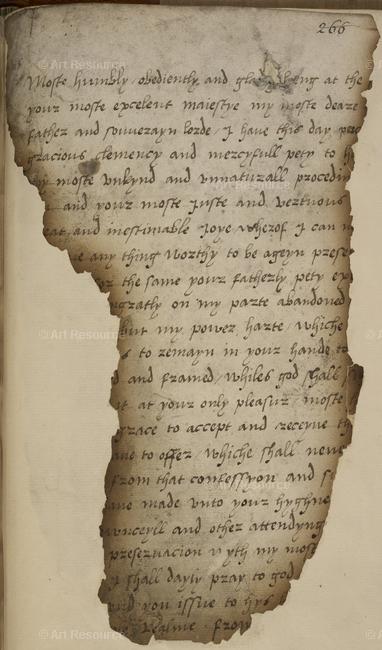 266
Moste humbly obediently and gla lying at the
your moste excelent maiestye my moste deare
father and souuerayn lorde / I have this day
gracious clemency and mercyfull pety to
moste vnkynd and vnnaturall procedin
and your moste Iuste and vertuous
eat and inestimable Ioye wherof I can n
e any thing worthy to be ageyn prese
the same your fatherly pety ex
ngratly on my parte abandoned
but my power harte / whiche
s to remayn in your hande to
d and framed / whiles god shall
it at your only pleasur / moste
grace to accept and receyve th
ave to offer / whiche shall neve
from that confessyon and s
me made vnto your hyghne
ounceyll and other attendyng
preseruacion wyth my mos
I shall dayly pray to god
end you issue to hys
Realme / From
© Art Resource
© Art Resource
© Art Resource
© Art Resource
© Art Resource
© Art Resource
© Art Resource